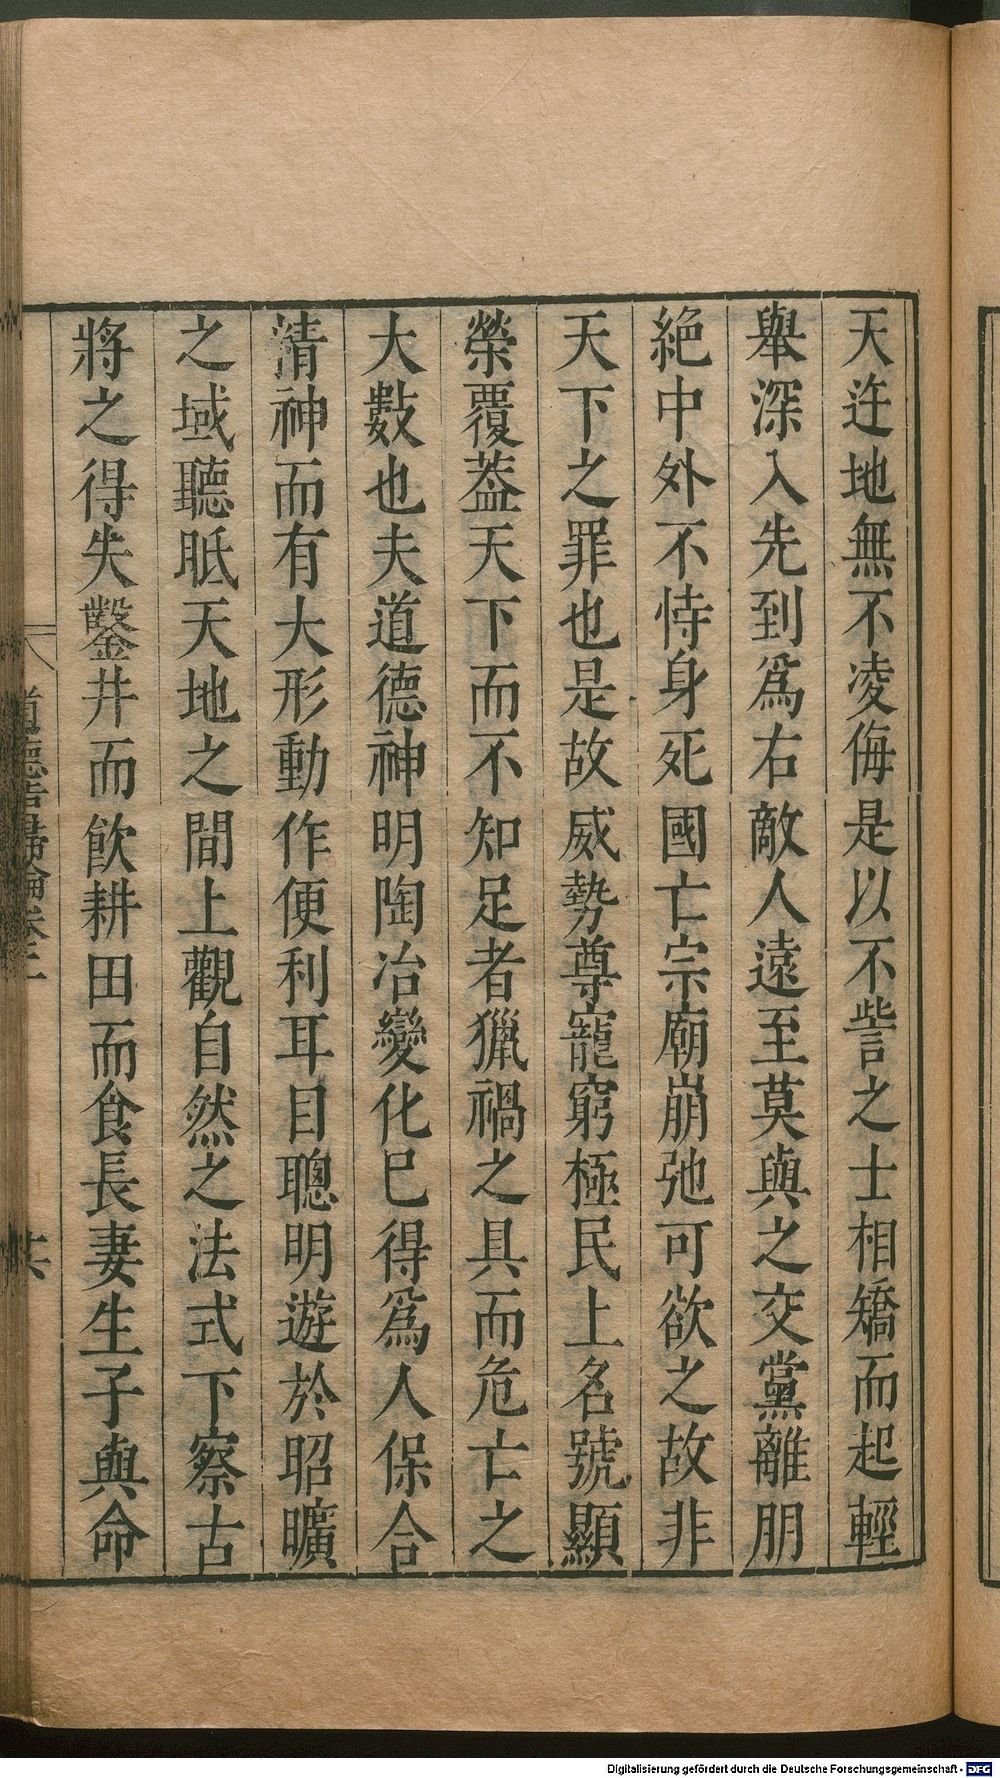 天迕地無不凌侮是以不訾之士相矯而起輕
舉深入先到爲右敵人遠至莫與之交黨離朋
絶中外不恃身死國亡宗廟崩弛可欲之故非
天下之罪也是故威勢尊寵窮極民上名號顯
榮覆葢天下而不知足者獵禍之具而危亡之
大數也夫道德神明陶冶變化已得爲人保合
精神而有大形動作便利耳目聰明遊於昭曠
之域聽眡天地之間上觀自然之法式下察古
將之得失鑿井而飮耕田而食長妻生子與命
道德指歸論卷三
Digitalisierung gefördert durch die Deutsche Forschungsgemeinschaft - DFG